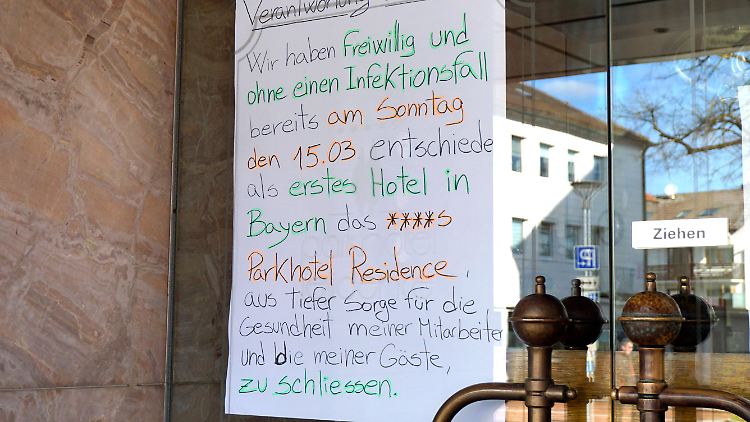 Verantwortung
Wir haben Freiwillig und
ohne einen Infektionsfall
bereits am Sonntag
den 15.03 entschiede
als erstes Hotel in
Bayern das ****s
Parkhotel Residence,
aus tiefer Sorge für die
Gesundheit meiner Mitarbeiter
und die meiner Gäste,
zu schliessen.
Ziehen